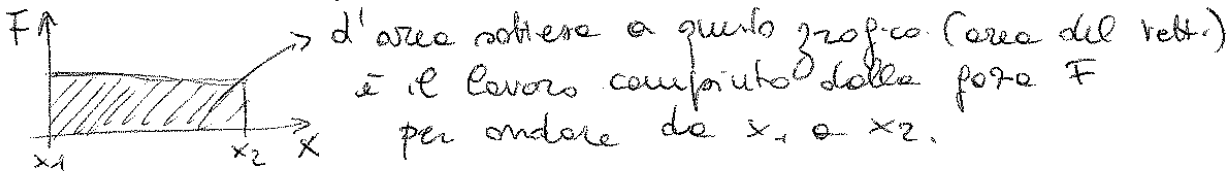 F
l'area sottesa a questo grafico (area del rett.)
è il lavoro compiuto dalla forza F
per andare da x₁ a x₂.
x₁ x₂ x